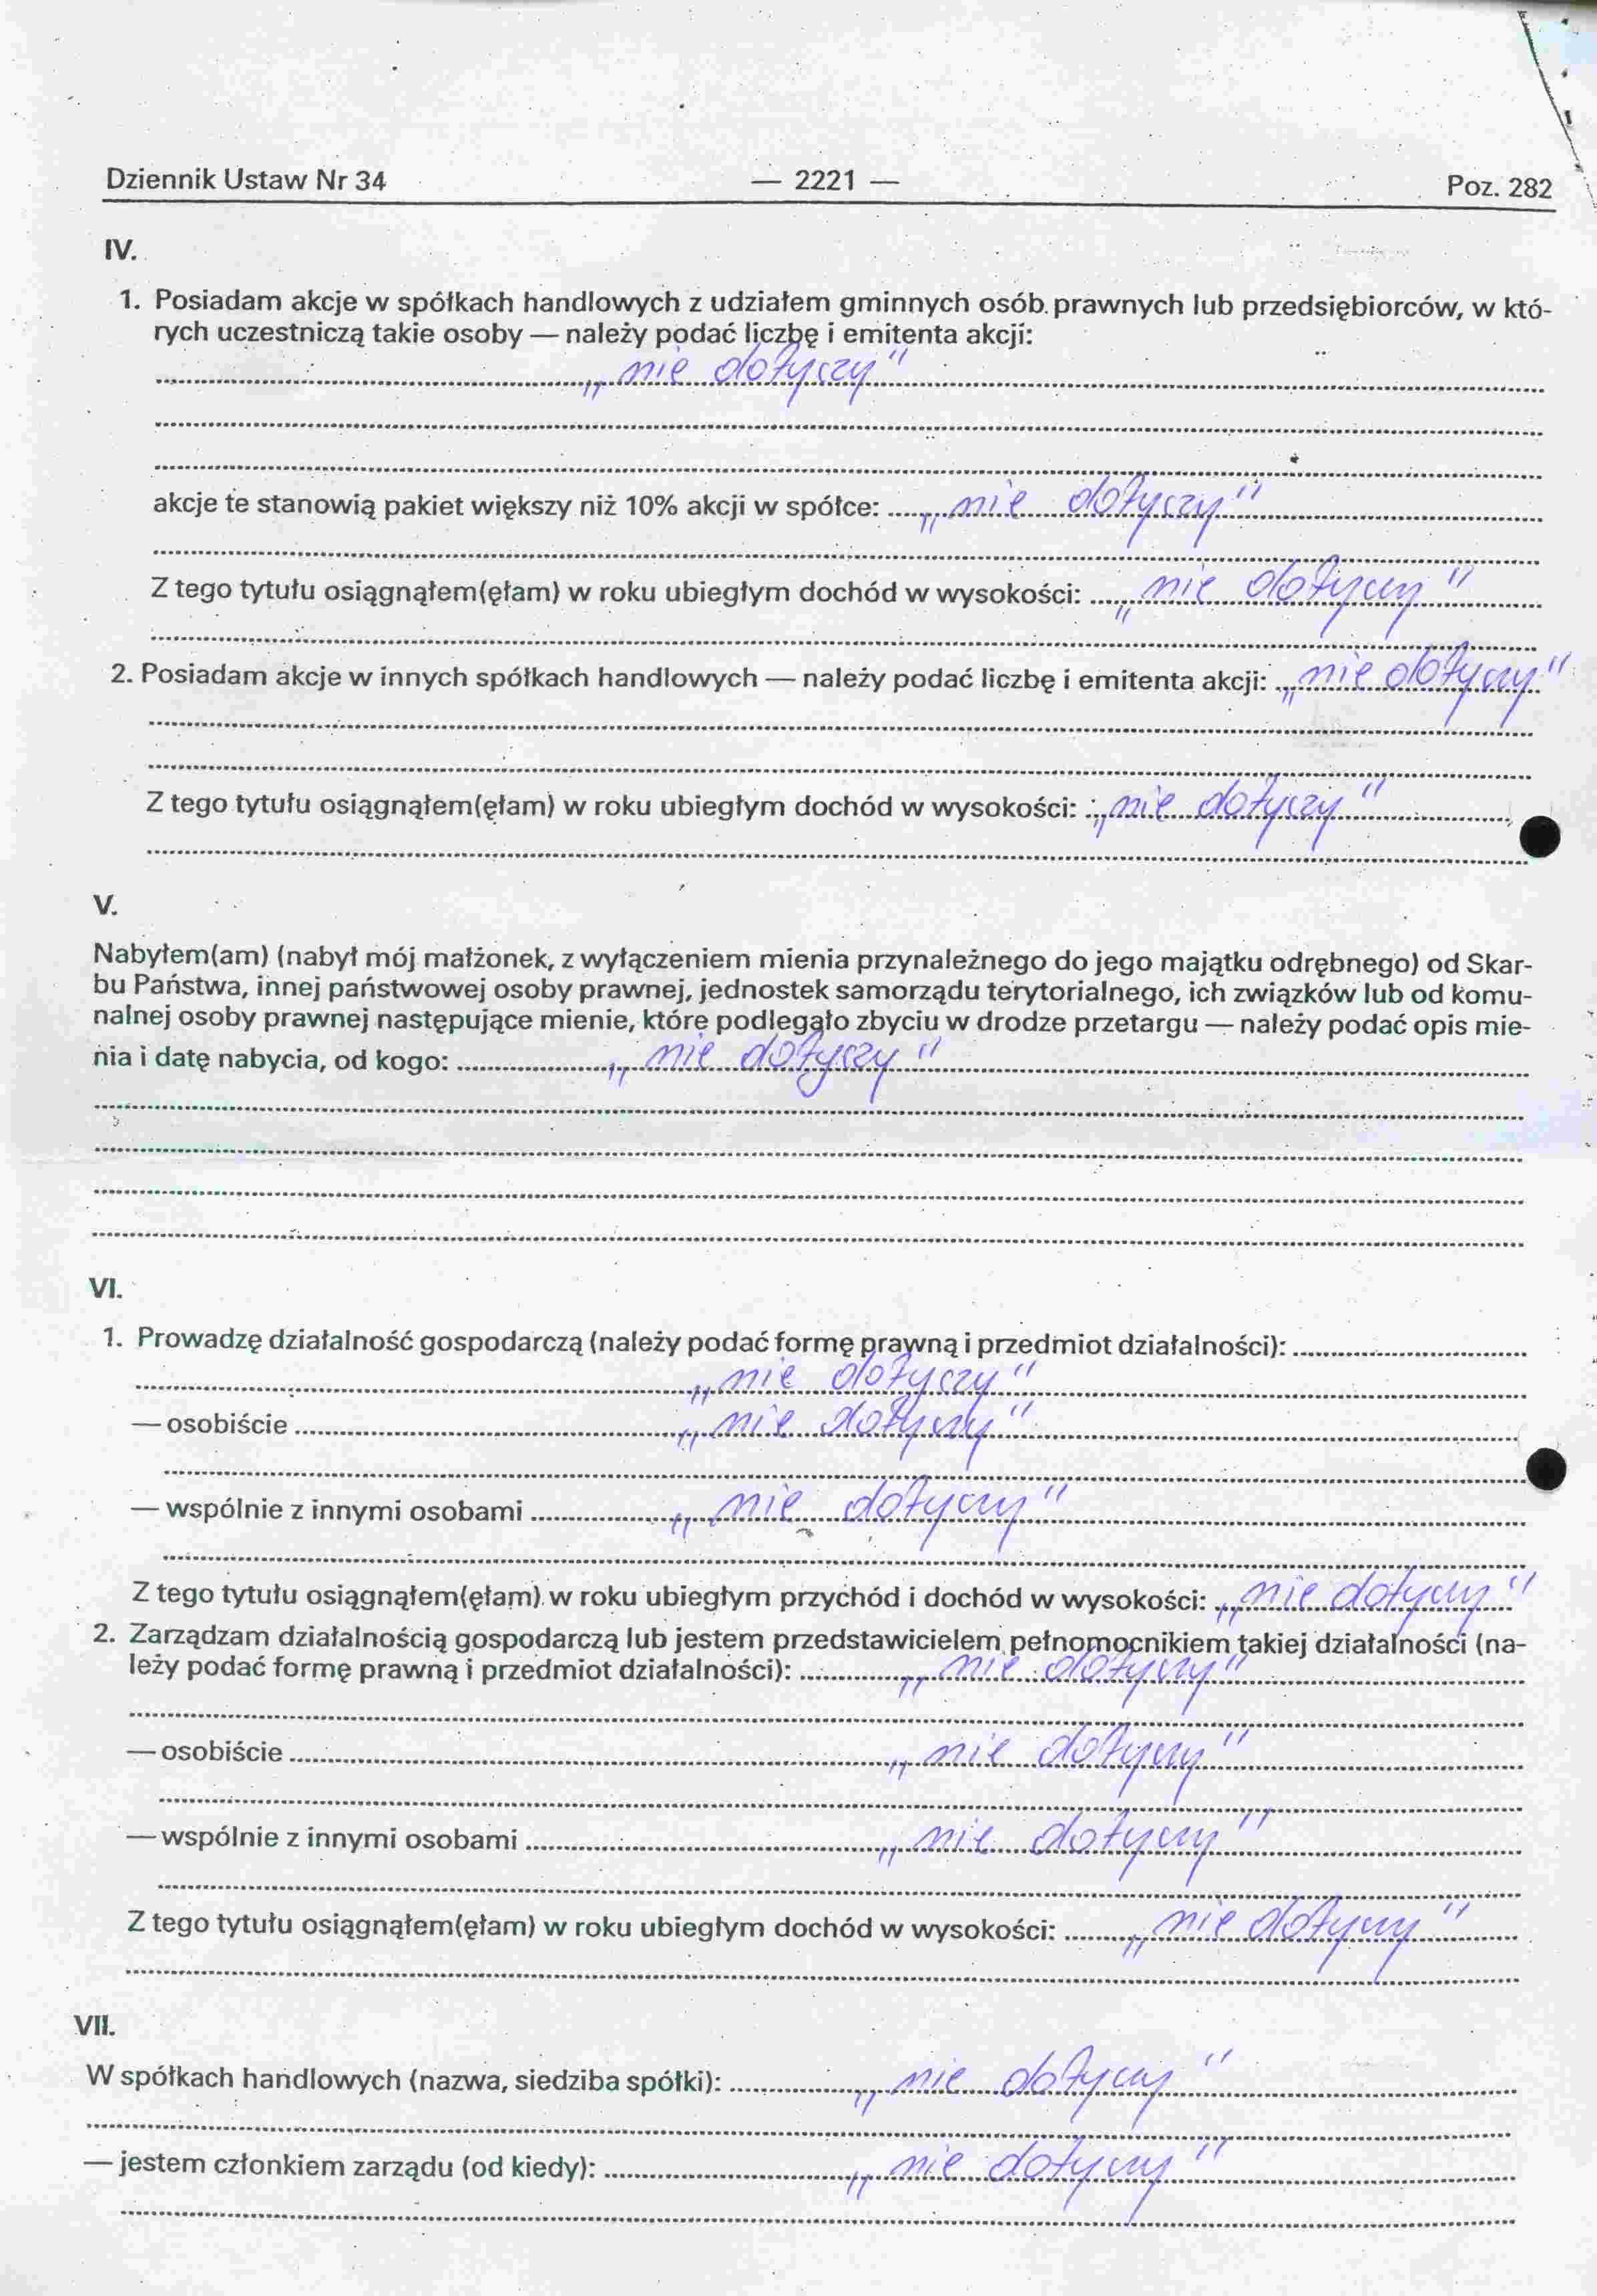 Dziennik Ustaw Nr 34 — 2221 — Poz. 282
IV.
1. Posiadam akcje w spółkach handlowych z udziałem gminnych osób prawnych lub przedsiębiorców, w któ-
rych uczestniczą takie osoby — należy podać liczbę i emitenta akcji:
„nie dotyczy"
akcje te stanowią pakiet większy niż 10% akcji w spółce: „nie dotyczy"
Z tego tytułu osiągnąłem(ęłam) w roku ubiegłym dochód w wysokości: „nie dotyczy"
2. Posiadam akcje w innych spółkach handlowych — należy podać liczbę i emitenta akcji: „nie dotyczy"
Z tego tytułu osiągnąłem(ęłam) w roku ubiegłym dochód w wysokości: „nie dotyczy"
V.
Nabyłem(am) (nabył mój małżonek, z wyłączeniem mienia przynależnego do jego majątku odrębnego) od Skar-
bu Państwa, innej państwowej osoby prawnej, jednostek samorządu terytorialnego, ich związków lub od komu-
nalnej osoby prawnej następujące mienie, które podlegało zbyciu w drodze przetargu — należy podać opis mie-
nia i datę nabycia, od kogo: „nie dotyczy"
VI.
1. Prowadzę działalność gospodarczą (należy podać formę prawną i przedmiot działalności):
„nie dotyczy"
— osobiście „nie dotyczy"
— wspólnie z innymi osobami „nie dotyczy"
Z tego tytułu osiągnąłem(ęłam) w roku ubiegłym przychód i dochód w wysokości: „nie dotyczy"
2. Zarządzam działalnością gospodarczą lub jestem przedstawicielem pełnomocnikiem takiej działalności (na-
leży podać formę prawną i przedmiot działalności): „nie dotyczy"
— osobiście „nie dotyczy"
— wspólnie z innymi osobami „nie dotyczy"
Z tego tytułu osiągnąłem(ęłam) w roku ubiegłym dochód w wysokości: „nie dotyczy"
VII.
W spółkach handlowych (nazwa, siedziba spółki): „nie dotyczy"
— jestem członkiem zarządu (od kiedy): „nie dotyczy"